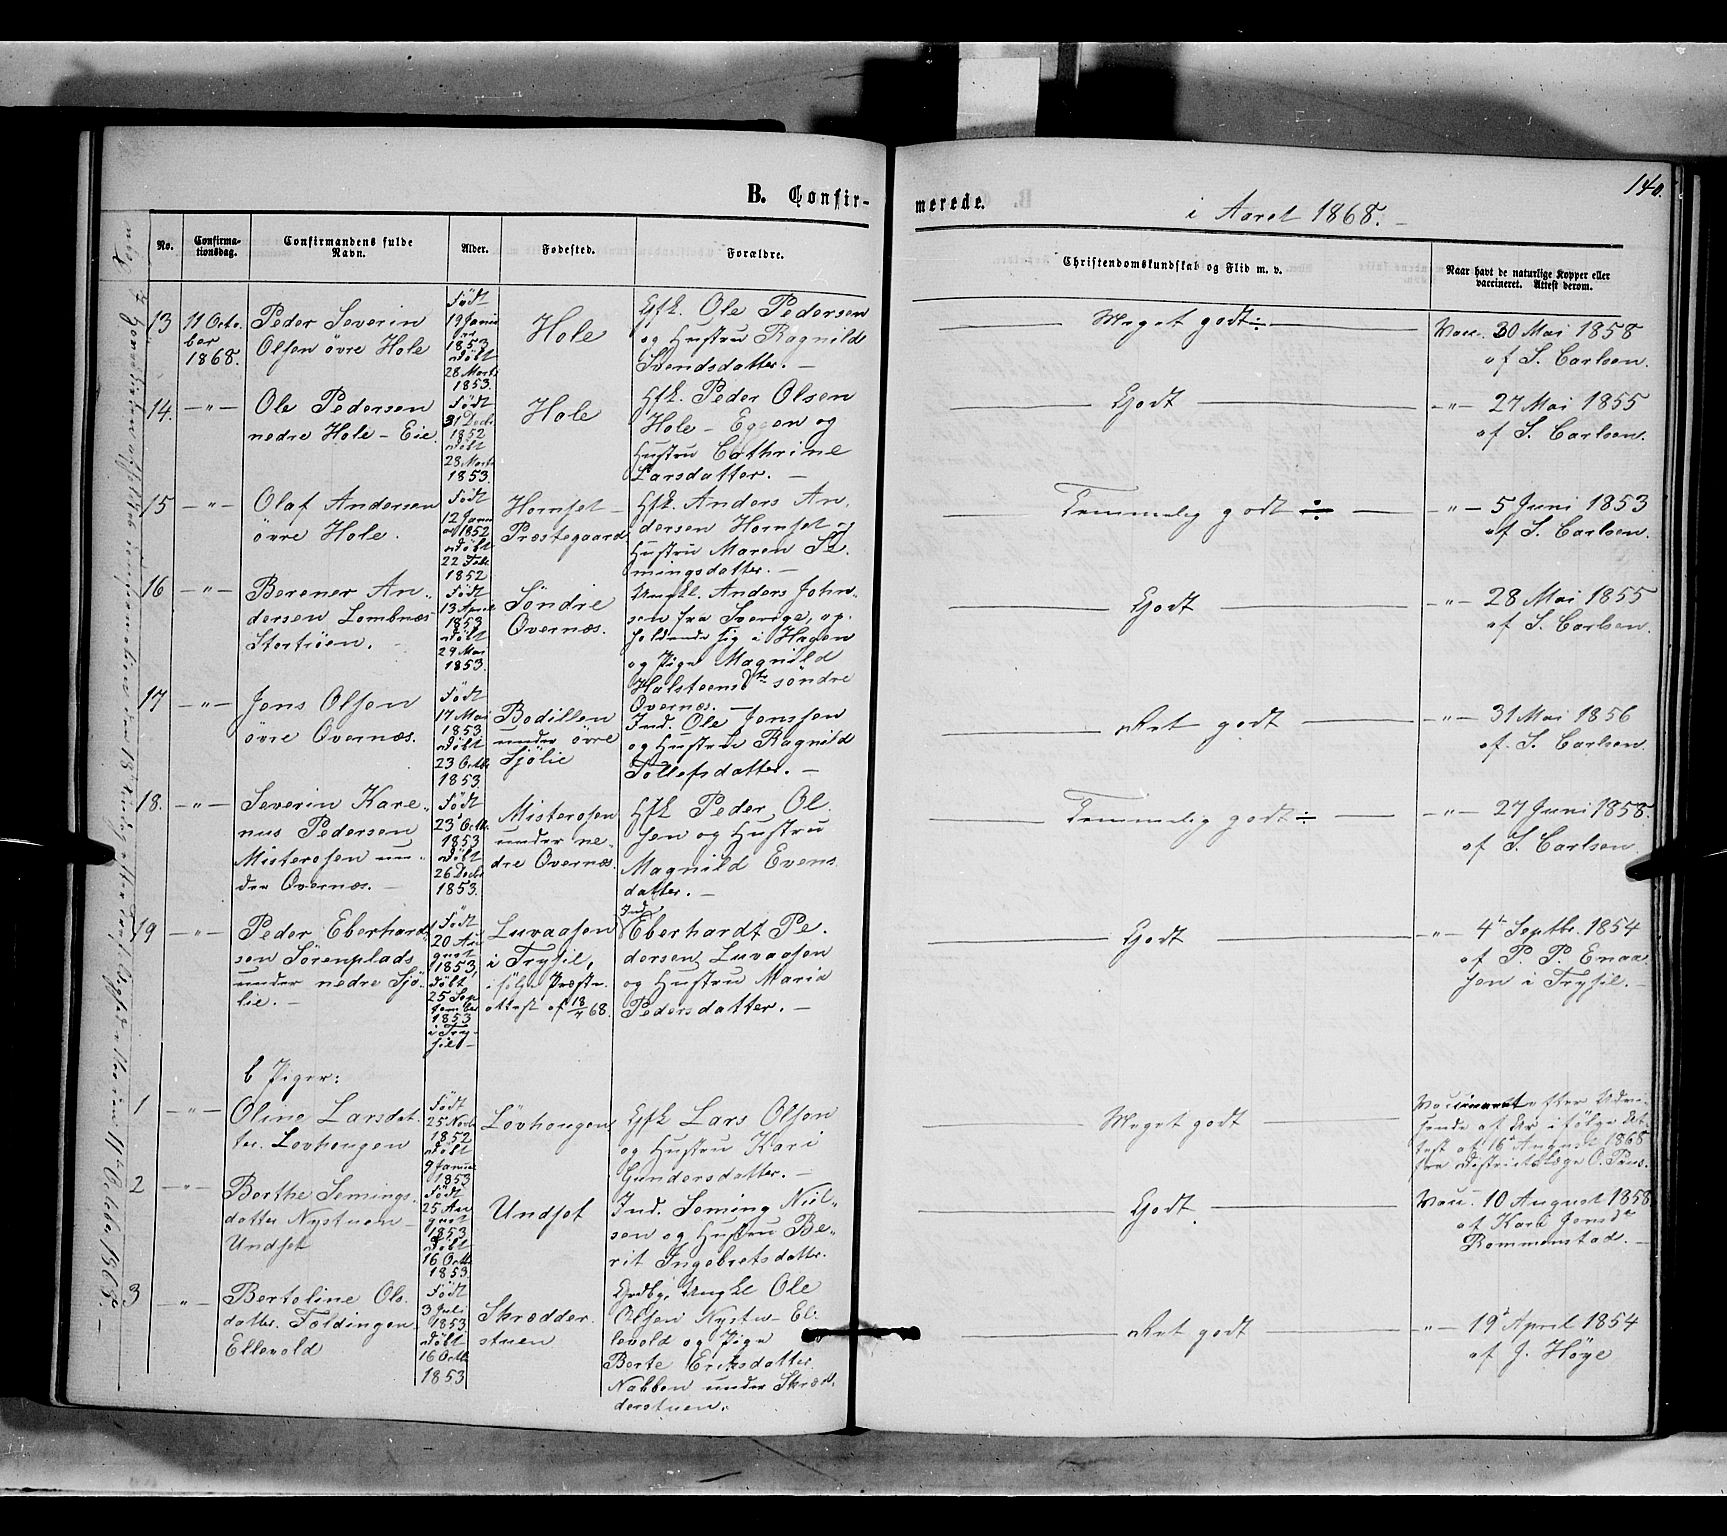 B. Confir-
merede.
i Aaret 1868.
140.
No.
Confirma-
tionsdag.
Confirmandens fulde
Navn.
Alder.
Fødested.
Forældre.
Christendomskundskab og Flid m. v.
Naar havt de naturlige Kopper eller
vaccineret. Attest derom.
13
11 Octo.
ber
1868.
Peder Severin
Olsen övre Hole
Födt
19 Janu
ar
1853
döbt
28 Marts
1853.
Hole
Gfk. Ole Pedersen
og Hustru Ragnild
Svendsdatter. —
Meget godt ÷
Vacc. 30 Mai 1858
af S. Carlsen.
14.
— " —
Ole Pedersen
nedre Hole - Eie.
Födt
31 Decbr
1852
döbt
28 Marts
1853.
Hole
Gfk. Peder Olsen
Hole - Eggen og
Hustru Cathrine
Larsdatter. —
Godt
— " — 27 Mai 1855
af S. Carlsen.
15
— " —
Olaf Andersen
övre Hole.
Födt
12 Janu
ar 1852
döbt
22 Feb
1852
Hornset
Præstegaard
Gfk. Anders An.
dersen Hornset og
Hustru Maren Se.
mingsdatter. —
Temmelig godt ÷
— " — 5 Juni 1853
af S. Carlsen.
16
— " —
Berener An„
dersen Lombnæs
Stortröen.
Födt
13 April
1853
döbt
29 Mai
1853.
Söndre
Overnæs.
Ungkl. Anders John„
sen fra Sverige, op.
holdende sig i Hagen
og Pige Magnild
Halsteensdtr söndre
Overnæs. —
Godt
— " — 28 Mai 1855
af S. Carlsen.
17
— " —
Jens Olsen
övre Overnæs.
Födt
17 Mai
1853
döbt
23 Octb
1853.
Bodillen
under övre
Sjölie
Ind. Ole Jenssen
og Hustru Ragnild
Tollefsdatter. —
Art godt
— " — 31 Mai 1856
af S. Carlsen.
18.
— " —
Severin Kare„
nus Pedersen
Misterosen un„
der Overnæs. —
Födt
23 Octb.
1853
döbt
26 Decbr
1853.
Misterosen
under ne„
dre Overnæs.
Gfk Peder Ol.
sen og Hustru
Magnild Evens
datter. —
Temmelig godt ÷
— " — 27 Juni 1858.
af S. Carlsen.
19
— " —
Peder Eberhard
sen Sörenplads
under nedre Sjö„
lie. —
Födt
20 Au
gust
1853,
döbt
25 Sep
tember
1853
i Try„
sil. —
Luvaasen
i Trysil,
ifölge Præste.
attest af 68.
Ind.
Eberhardt Pe.
dersen Luvaasen
og Hustru Maria
Pedersdatter. —
Godt
— " — 4 Septbr. 1854
af P. P. Enaa
sen i Trysil. —
b Piger:
1
— " —
Oline Larsdat.
ter. Lovhougen
Födt
25 Novb
1852
döbt
9 Janua
1853
Lövhougen
Gfk Lars Olsen
og Hustru Kari
Gundersdatter. —
Meget godt
Vaccineret efter Udse„
ende af Ar ifölge At„
test af 16 August 1868
fra Districtslæge O. Paus.
2
— " —
Berthe Semings.
datter Nystuen
Undset
Födt
25 Au
gust
1853
döbt
16 Octb
1853.
Undset
Ind. Seming Niel„
sen og Hustru Be„
rit Ingebretsdatter.
Godt.
Vacc. 10 August 1858
af Kari Jensdr
Rommenstad. —
3
— " —
Bertoline Ols.
datter. Fældingen
Ellevold
Födt
3 Juli
1853
döbt
16 Octb
1853
Skrædder.
stuen
Ungkl Ole
Olsen Nystu - El.
levold og Pige
Berte Eriksdatter
Nabben under Skræd.
derstuen.
Art godt
— " — 19 April 1854
af J. Höye